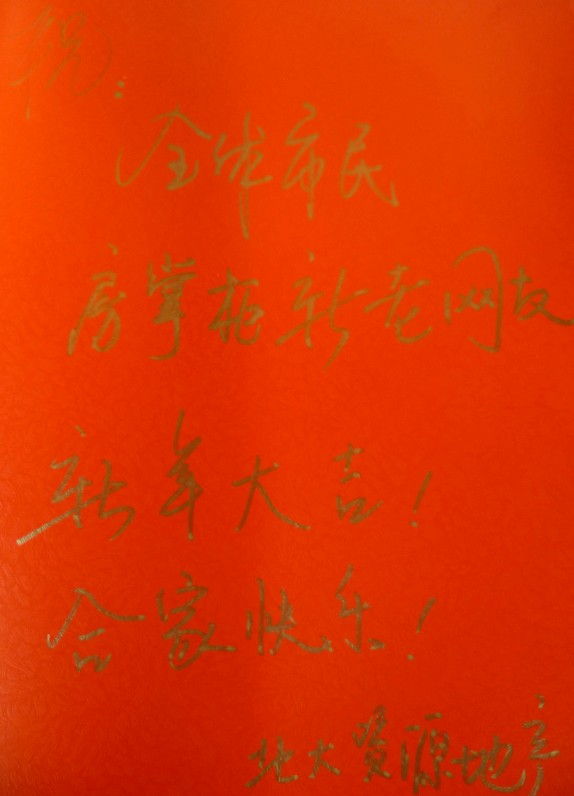 祝：
全体市民
房掌柜新老网友
新年大吉！
合家快乐！
北大资源地产